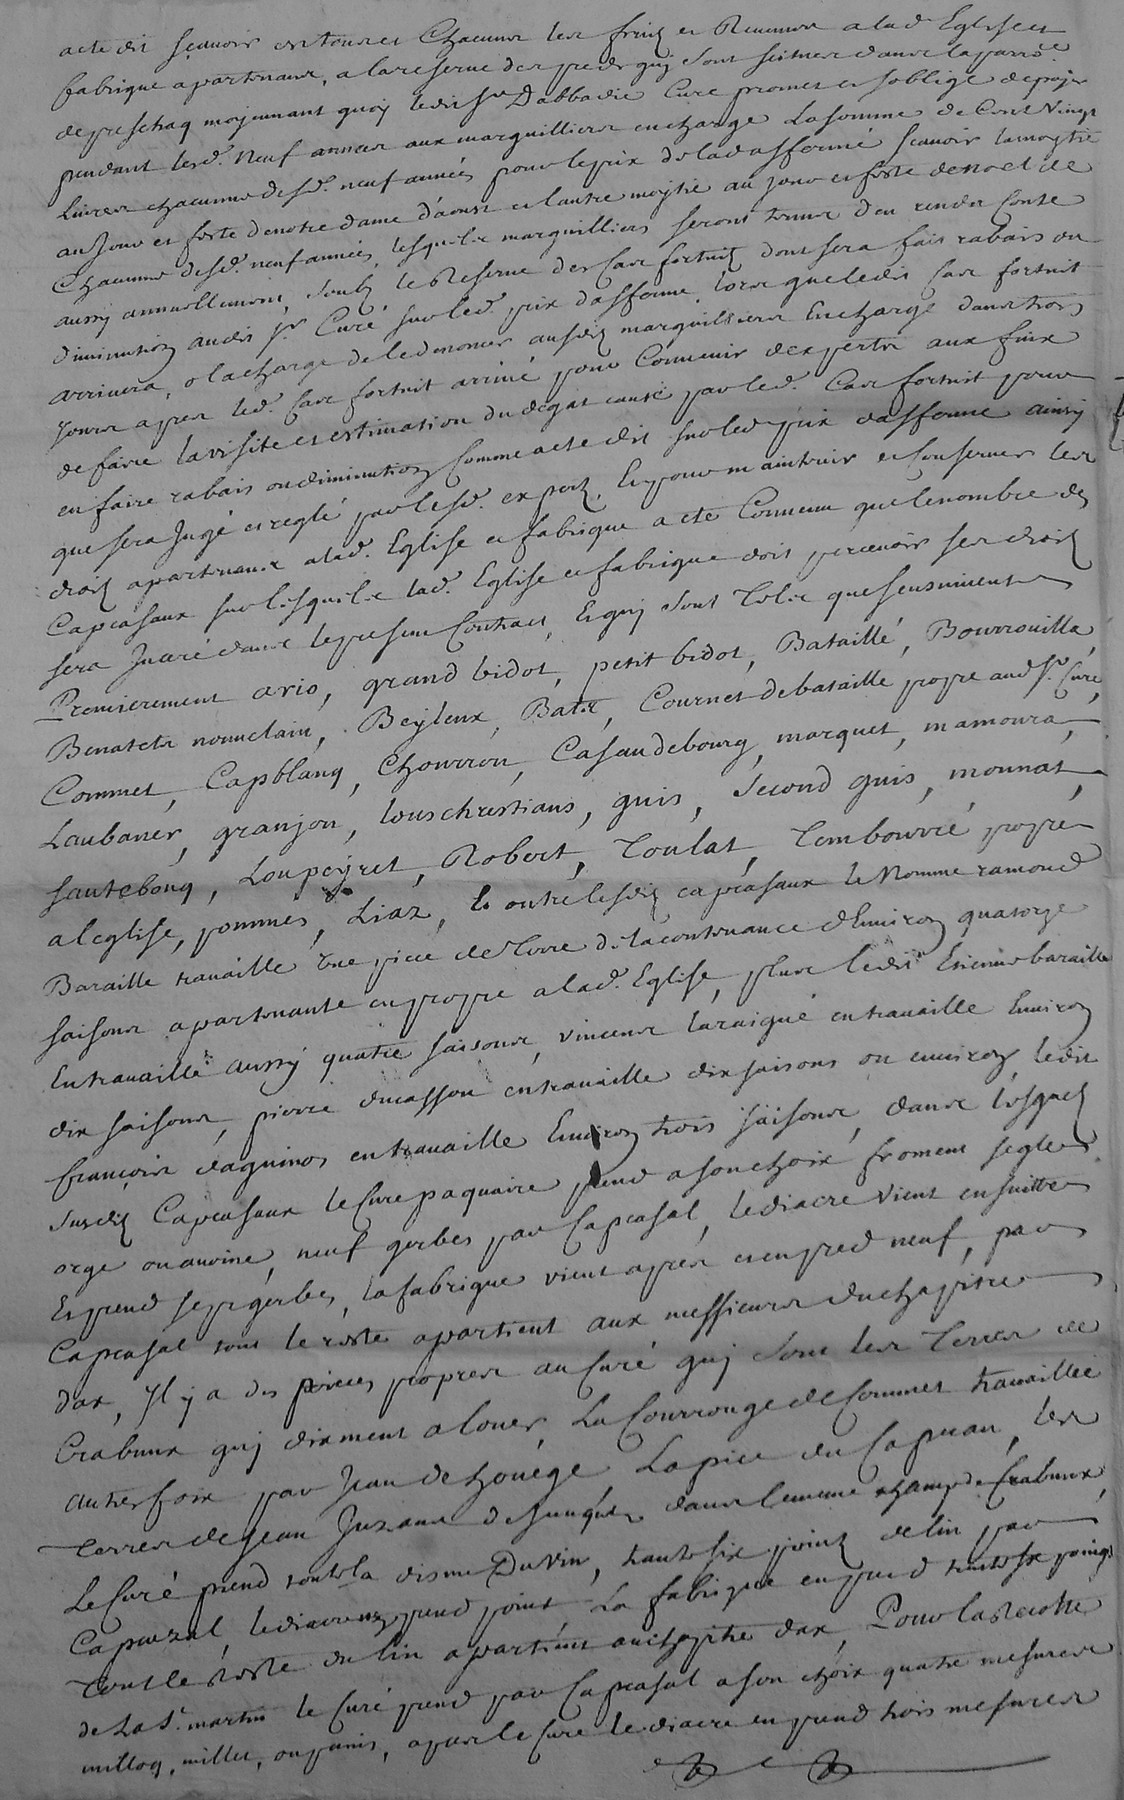 acte dit sçavoir en tous et chacuns les fruis et Revenus a lad. Eglise et
fabrique apartenans, a la reserve des preds quy sont scitues dans la parroe.
de preschaq moyennant quoy ledit sr Dabbadie Curé promet et soblige de payer
pendant lesd. neuf années aux marguilliers en charge La somme de Cent Vingt
Livres chacunne desd. neuf années pour le prix de lad. afferme sçavoir la moytié
au Jour et feste de notre dame d'aoust et lautre moytié au jour et feste de noel de
Chacunne desd. neuf années, lesquels marguilliers seront tenus d'en rendre Conte
aussy annuellement, soubs le Reserve des Cas fortuits dont sera fait rabais ou
diminution audit sr. Curé sur led. prix dafferme, lors que ledit Cas fortuit
arrivera, a la charge de le denoncer ausdis marguilliers En charge dans trois
jours apres led. Cas fortuit arrivé pour Convenir dexperts aux fins
de faire la visite et estimation du degat causé par led. Cas fortuit pour
en faire rabais ou diminution Comme acte dit sur led prix dafferme ainsy
que sera Jugé et reglé par lesd. expers, Et pour maintenir et Conserver les
droits apartenans a lad. Eglise et fabrique a eté Convenu que le nombre des
Capcasaux sur lesquels lad. Eglise et fabrique doit percevoir ses droits
sera Inceré dans le present Contract, Et quy sont Tels que sensuivent
Premierement ario, grand bidot, petit bidot, Bataillé, Bourrouilla,
Benatets nouuelain, Beyleux, Bats, Cournet de bataille propre aud sr. Curé,
Commet, Capblanq, Chourron, Casaudebourg, marquet, mamoura,
Laubaner, granjon, lous chrestians, guis, Second guis, mounat,
Sautebouq, Loupeyret, Robert, Toulat, Tembourré propre
a leglise, pommes, Liaz, Et outre lesdis capcasaux le Nomme ramond
Baraille travaille Une piece de Terre de la contenance d'Environ quatorze
saisons apartenante en propre a lad. Eglise, plus ledit Etienne baraille
En travaille aussy quatre saisons, vincens laraigué en travaille Environ
dix saisons, pierre ducasson en travaille dix saisons ou environ, ledit
françois daguinos en travaille Environ trois saisons, dans lesquels
susdis Capcasaux le Curé paquaire prend a son choix froment segle
orge ou avoine, neuf gerbes par Capcasal, le diacre vient ensuitte
Et prend sept gerbes, la fabrique vient apres et en pred neuf, par
Capcasal tout le reste apartient aux messieurs du chapitre
dax, Il y a des pieces propres au Curé quy sont les Terres de
Crabeux quy dixment a louer, La Courrouge de Commet travaillée
autresfois par Jean dehouégé La piece du Capuran, les
Terres de Jean Juzans de junqua dans le meme champ de Crabeux,
Le Curé prend toute la disme Du vin, trante six poins de lin par
Capcazal, le diacre n'en prend point La fabrique en prend trante six poings
Tout le Reste du lin apartient au chapitre dax, Pour la Recolte
de La st. martin le Curé prend par Capcasal a son choix quatre mesures
milloq, millet, ou panis, apres le Curé le diacre en prend trois mesures